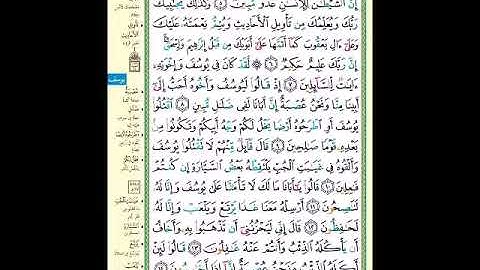 إِنَّ ٱلشَّيْطَٰنَ لِلْإِنسَٰنِ عَدُوٌّ مُّبِينٌ ۝٥ وَكَذَٰلِكَ يَجْتَبِيكَ
رَبُّكَ وَيُعَلِّمُكَ مِن تَأْوِيلِ ٱلْأَحَادِيثِ وَيُتِمُّ نِعْمَتَهُۥ عَلَيْكَ
وَعَلَىٰٓ ءَالِ يَعْقُوبَ كَمَآ أَتَمَّهَا عَلَىٰٓ أَبَوَيْكَ مِن قَبْلُ إِبْرَٰهِيمَ وَإِسْحَٰقَ
إِنَّ رَبَّكَ عَلِيمٌ حَكِيمٌ ۝٦ ۞ لَّقَدْ كَانَ فِى يُوسُفَ وَإِخْوَتِهِۦٓ
ءَايَٰتٌ لِّلسَّآئِلِينَ ۝٧ إِذْ قَالُوا۟ لَيُوسُفُ وَأَخُوهُ أَحَبُّ إِلَىٰٓ
أَبِينَا مِنَّا وَنَحْنُ عُصْبَةٌ إِنَّ أَبَانَا لَفِى ضَلَٰلٍ مُّبِينٍ ۝٨ ٱقْتُلُوا۟
يُوسُفَ أَوِ ٱطْرَحُوهُ أَرْضًا يَخْلُ لَكُمْ وَجْهُ أَبِيكُمْ وَتَكُونُوا۟ مِنۢ
بَعْدِهِۦ قَوْمًا صَٰلِحِينَ ۝٩ قَالَ قَآئِلٌ مِّنْهُمْ لَا تَقْتُلُوا۟ يُوسُفَ
وَأَلْقُوهُ فِى غَيَٰبَتِ ٱلْجُبِّ يَلْتَقِطْهُ بَعْضُ ٱلسَّيَّارَةِ إِن كُنتُمْ
فَٰعِلِينَ ۝١٠ قَالُوا۟ يَٰٓأَبَانَا مَا لَكَ لَا تَأْمَ۫نَّا عَلَىٰ يُوسُفَ وَإِنَّا لَهُۥ
لَنَٰصِحُونَ ۝١١ أَرْسِلْهُ مَعَنَا غَدًا يَرْتَعْ وَيَلْعَبْ وَإِنَّا لَهُۥ
لَحَٰفِظُونَ ۝١٢ قَالَ إِنِّى لَيَحْزُنُنِىٓ أَن تَذْهَبُوا۟ بِهِۦ وَأَخَافُ
أَن يَأْكُلَهُ ٱلذِّئْبُ وَأَنتُمْ عَنْهُ غَٰفِلُونَ ۝١٣ قَالُوا۟ لَئِنْ
أَكَلَهُ ٱلذِّئْبُ وَنَحْنُ عُصْبَةٌ إِنَّآ إِذًا لَّخَٰسِرُونَ ۝١٤
يوسف